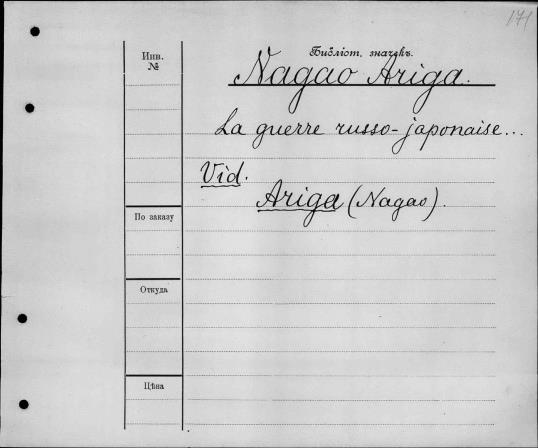 171
Библіот. значекъ.
Инв.
№
Nagao Ariga.
La guerre russo-japonaise...
Vid.
Ariga (Nagao).
По заказу
Откуда
Цѣна